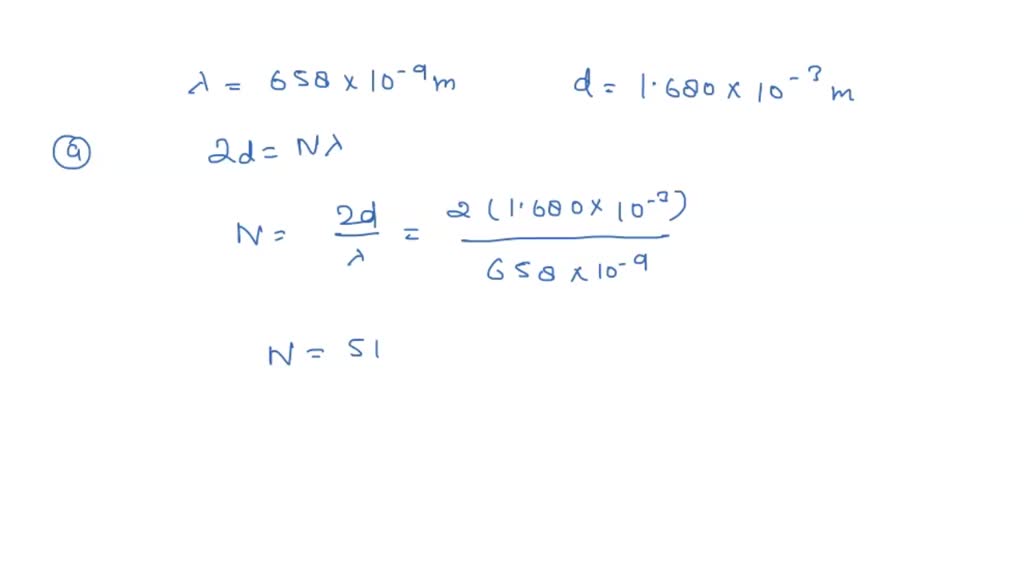 λ = 658 × 10⁻⁹ m d = 1.680 × 10⁻³ m
(a) 2d = Nλ
N = 2d/λ = 2 (1.680 × 10⁻³) / 658 × 10⁻⁹
N = 51